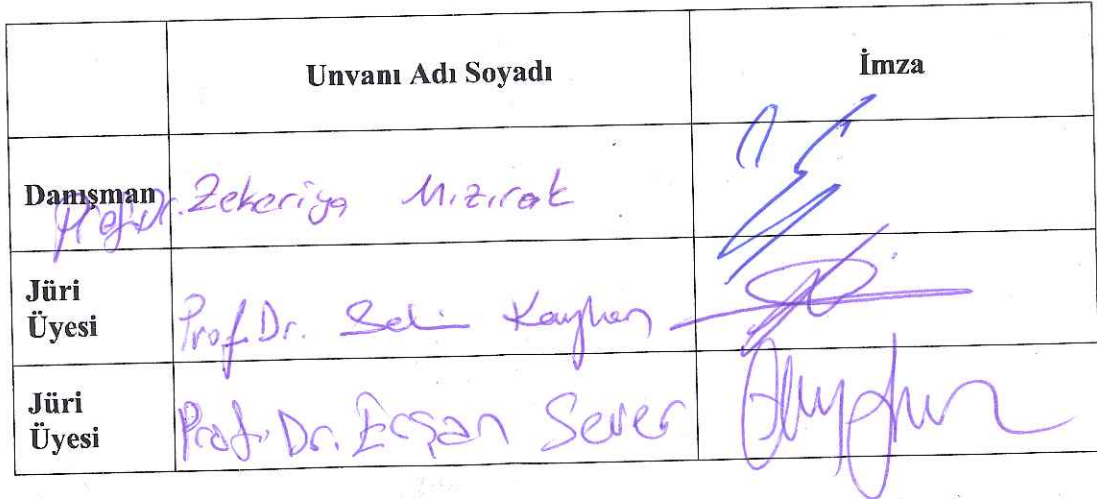 Unvanı Adı Soyadı İmza
Danışman Prof.Dr. Zekeriya Mızırak
Jüri Üyesi Prof.Dr. Kayhan
Jüri Üyesi Prof.Dr. Erşan Sever